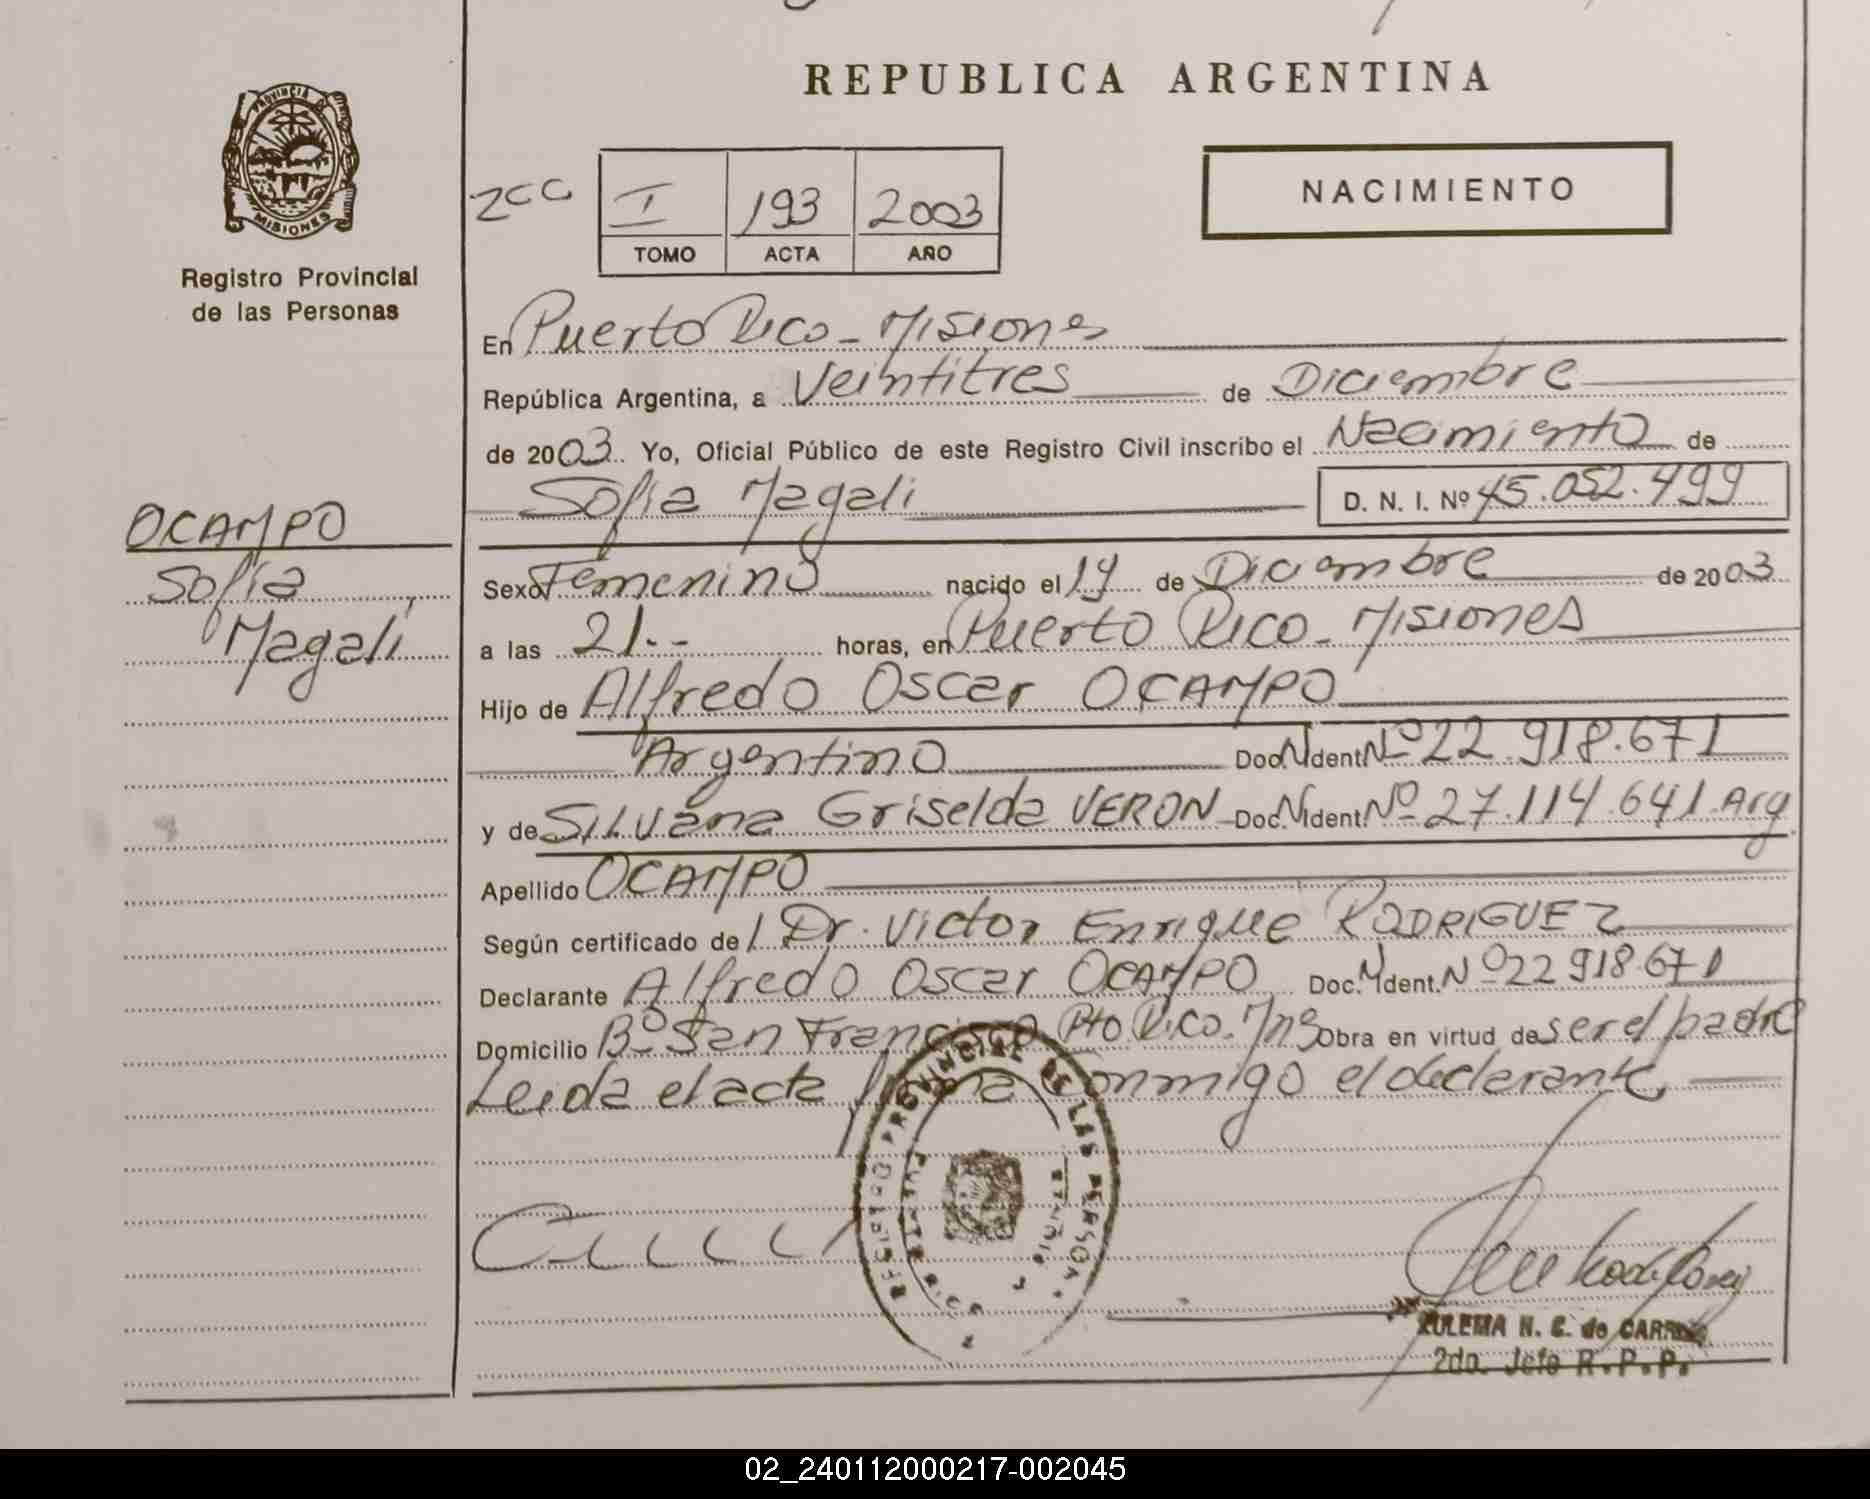 REPUBLICA ARGENTINA
PROVINCIA DE
MISIONES
Registro Provincial
de las Personas
I 193 2003
TOMO ACTA AÑO
NACIMIENTO
En Puerto Rico - Misiones
República Argentina, a Veintitres de Diciembre
de 2003 Yo, Oficial Público de este Registro Civil inscribo el Nacimiento de
Sofia Magali D. N. I. Nº 45.052.499
OCAMPO
Sofia
Magali
Sexo Femenino nacido el 19 de Diciembre de 2003
a las 21.- horas, en Puerto Rico - Misiones
Hijo de Alfredo Oscar OCAMPO
Argentino Doc. N Ident. Nº 22.918.671
y de SILvana Griselda VERON Doc. N Ident. Nº 27.114.641 Arg
Apellido OCAMPO
Según certificado de l Dr. Victor Enrique RODRIGUEZ
Declarante Alfredo Oscar OCAMPO Doc. N Ident. Nº 22.918.671
Domicilio Bº San Francisco Pto. Rico. Mns Obra en virtud de ser el padre
Leida el acta firma conmigo el declarante
REGISTRO PROVINCIAL DE LAS PERSONAS
PUERTO RICO
ZULEMA N. C. de
2do. Jefe R.P.P.
02_240112000217-002045